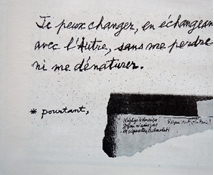 Je peux changer, en échangean
avec l'Autre, sans me perdre
ni me dénaturer.
* pourtant,